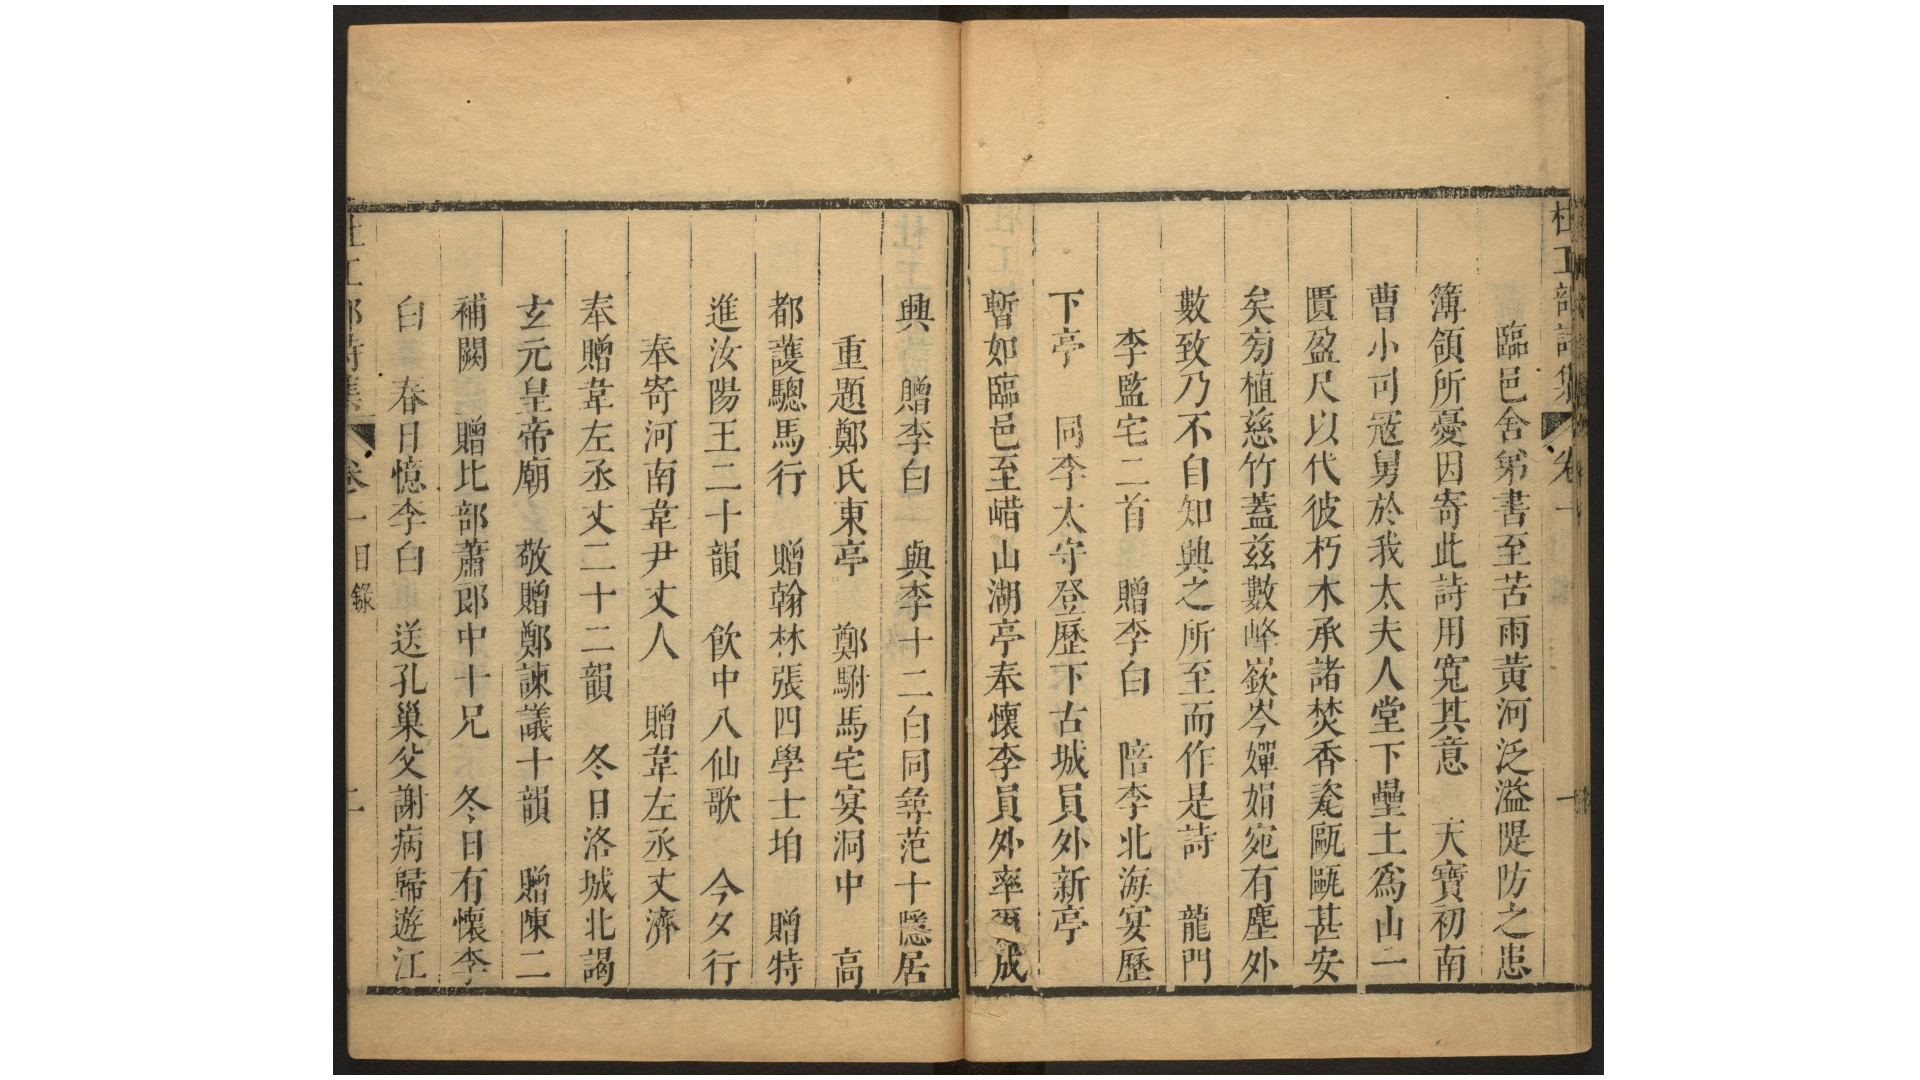 杜工部詩集 卷一 一
臨邑舍弟書至苦雨黄河泛溢隄防之患
簿領所憂因寄此詩用寬其意 天寶初南
曹小司寇舅於我太夫人堂下壘土爲山一
匱盈尺以代彼朽木承諸焚香瓷甌甌甚安
矣旁植慈竹蓋兹數峰嶔岑嬋娟宛有塵外
數致乃不自知興之所至而作是詩 龍門
李監宅二首 贈李白 陪李北海宴歷
下亭 同李太守登歷下古城員外新亭
暫如臨邑至㟙山湖亭奉懷李員外率爾成
興 贈李白 與李十二白同尋范十隱居
重題鄭氏東亭 鄭駙馬宅宴洞中 高
都護驄馬行 贈翰林張四學士垍 贈特
進汝陽王二十韻 飲中八仙歌 今夕行
奉寄河南韋尹丈人 贈韋左丞丈濟
奉贈韋左丞丈二十二韻 冬日洛城北謁
玄元皇帝廟 敬贈鄭諫議十韻 贈陳二
補闕 贈比部蕭郎中十兄 冬日有懷李
白 春日憶李白 送孔巢父謝病歸遊江
杜工部詩集 卷一目錄 二